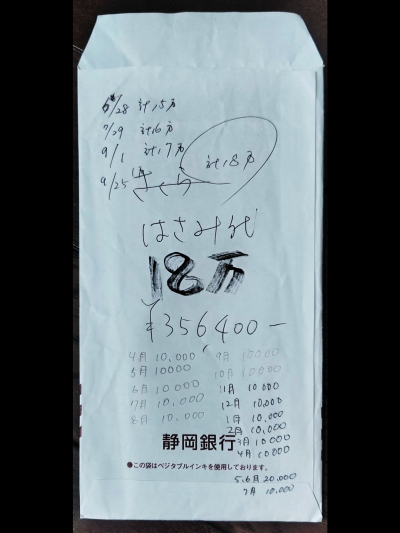 6/28 計15万
7/29 計16万
9/1 計17万
9/25
計18万
はさみ代
18万
¥356400-
4月 10,000
5月 10000
6月 10000
7月 10,000
8月 10,000
9月 10000
10月 10000
11月 10,000
12月 10,000
1月 10,000
2月 10,000
3月 10000
4月 10000
静岡銀行
●この袋はベジタブルインキを使用しております。
5.6月 20,000
7月 10,000